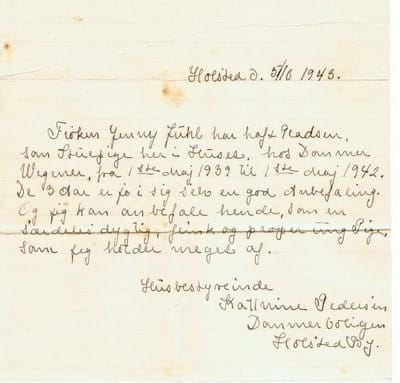 Holsted d. 5/10 1943.
Frøken Jenny Juhl har haft Pladsen,
som Stuepige her i Huset, hos Dommer
Wegener, fra 1ste Maj 1939 til 1ste Maj 1942.
De 3 Aar er jo i sig selv en god Anbefaling.
Og jeg kan anbefale hende, som en
særdeles dygtig, flink og proper ung Pige,
som jeg holder meget af.
Husbestyrerinde
Kathrine Pedersen
Dommerboligen
Holsted By.